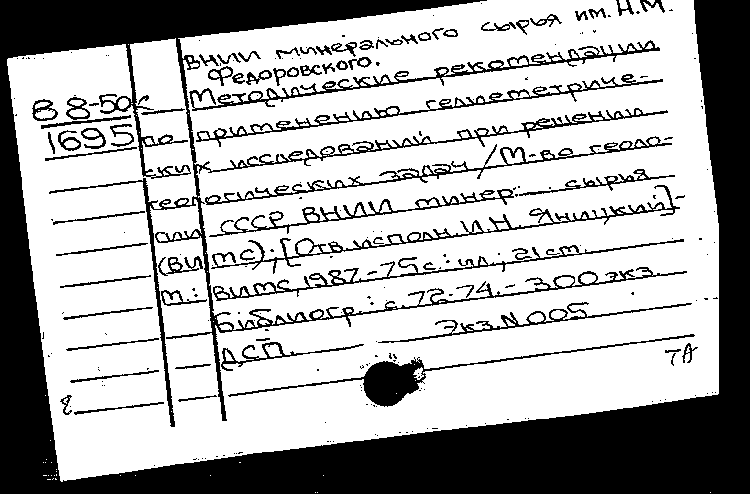 ВНИИ минерального сырья им. Н.М.
Федоровского.
88-50к
1695
Методические рекомендации
по применению гелиеметриче-
ских исследований при решении
геологических задач / М-во геоло-
гии СССР, ВНИИ минер. сырья
(ВИМС); [Отв. исполн. И.Н. Яницкий]-
М.: ВИМС, 1987.-75 с.: ил.; 21 см.
Библиогр.: с. 72-74. - 300 экз.
ДСП. Экз. N 005
7А